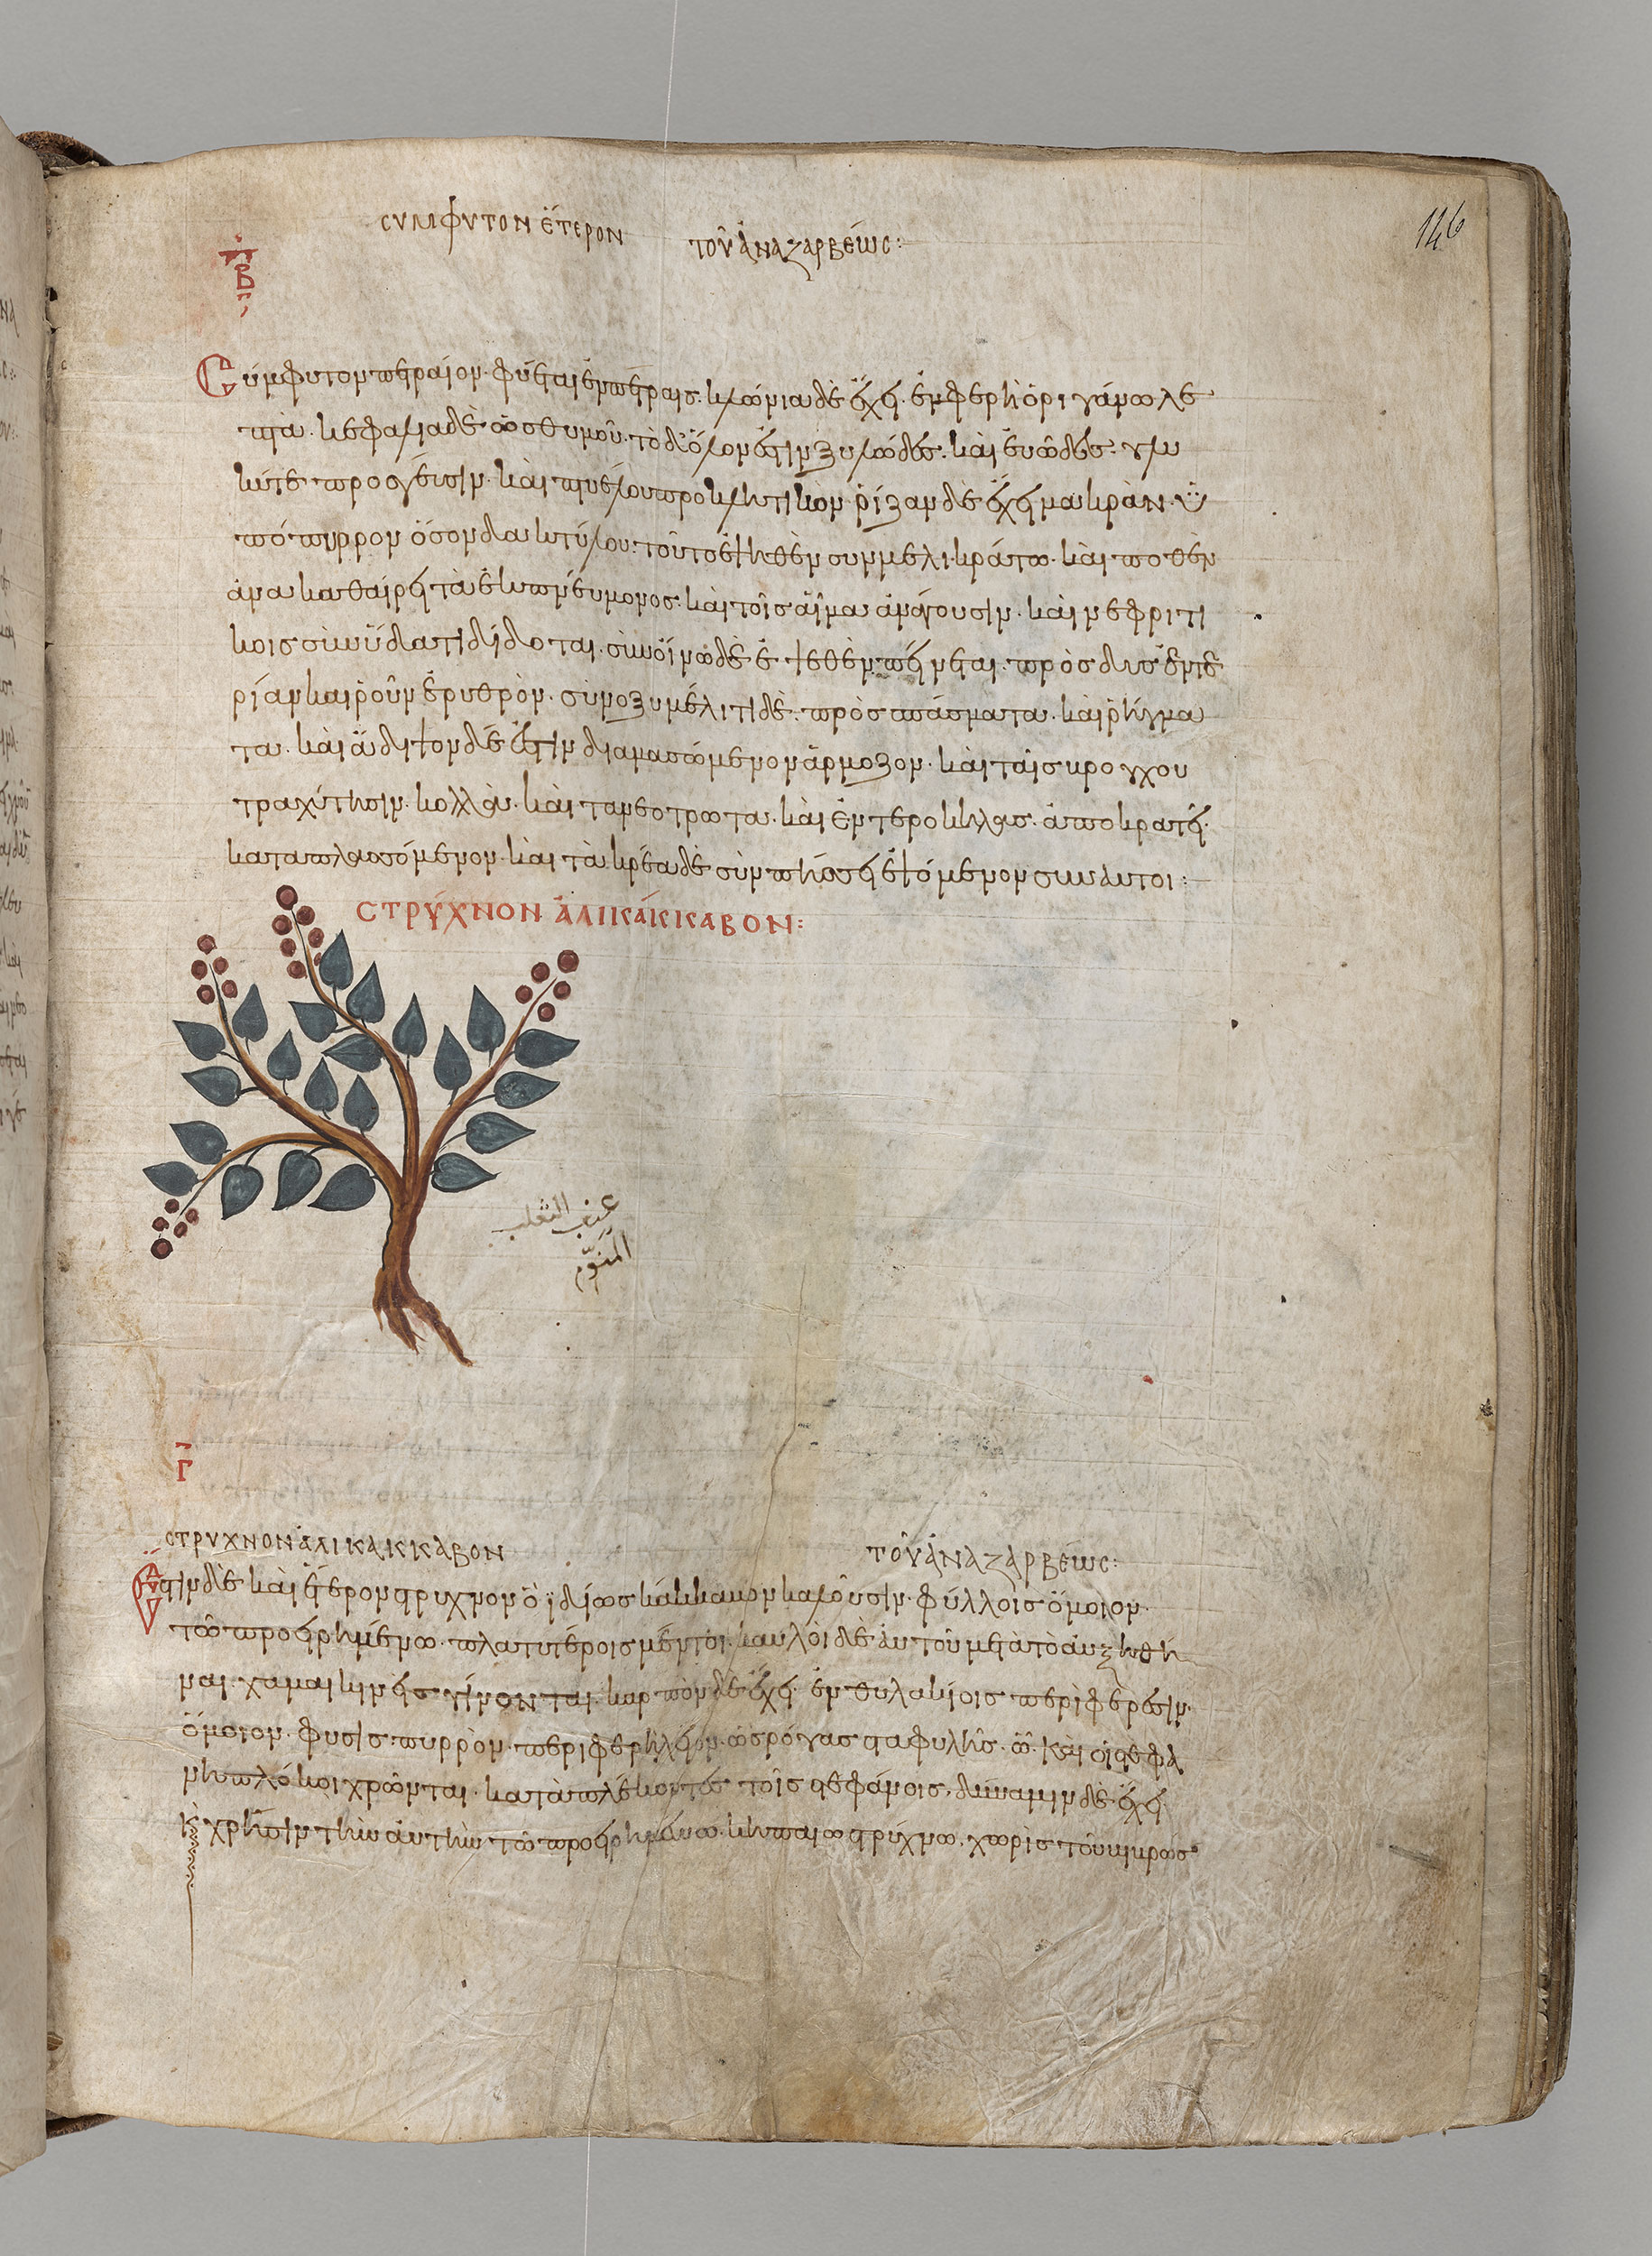 ϹΥΜΦΥΤΟΝ ἝΤΕΡΟΝ ΤΟΥ͂ ἈΝΑΖΑΡΒΕΏϹ:
146
Β
Σύμφυτον πετραίον· φύεται ἐν πέτραις· κλωνία δὲ ἔχει· ἐμφερῆ ὀριγάνω λε
πτὰ· κεφάλια δὲ ὡς θυμοῦ· τὸ δ' ὅλον ἐστὶν ξυλώδες· καὶ ευῶδες· γλυ
κύτε προσγέυσιν· καὶ πτυέλου προκλητικὸν· ῥίζαν δὲ ἔχει μακρὰν· ὑ
πόπυρρον ὅσον δακτύλου· τοῦτο ἑψηθὲν συν μελικράτω· καὶ ποθὲν
ἀνακαθαίρει τὰ ἐκ πνέυμονος· καὶ τοῖς αἷμα ἀνάγουσιν· καὶ νεφριτι
κοις σὺν ὕδατι δίδοται· σὺν οἴνω δὲ ἑψεθὲν πίνεται· πρὸς δυσεντε
ρίαν καὶ ροῦν ἐρυθρὸν· σὺν οξυμέλιτι δὲ· πρὸς σπάσματα· καὶ ῥήγμα
τα· καὶ ἄδιψον δέ ἐστιν διαμασώμενον ἅρμοζον· καὶ ταίς βρογχου
τραχύτησιν· κολλᾶ· καὶ τα νεοτρωτα· καὶ ἐντεροκήλας· ἀποκρατεῖ·
καταπλασσόμενον· καὶ τὰ κρέα δὲ σὺμπήσσει ἑψόμενον συν αυτοι:
ϹΤΡΎΧΝΟΝ ἈΛΙΚΆΚΚΑΒΟΝ:
عنب الثعلب
المنوّم
Γ
ϹΤΡΥΧΝΟΝ ἈΛΙΚΑΚΚΑΒΟΝ ΤΟΥ͂ ἈΝΑΖΑΡΒΕΏϹ:
Ἔστιν δὲ καὶ ἕτερον στρυχνον ὃ ἰδίως κάκκαβον καλοῦσιν· φύλλοις ὅμοιον·
τῶ προειρημένω· πλατυτέροις μέντοι· καυλὸι δὲ ἀυτοῦ μετὰ τὸ ἀυξηθῆ
ναι· χαμαικινεῖς γίνονται· καρπὸν δὲ ἔχει· ἐν θυλακίοις περιφέρεσιν·
ὅμοιον· φυσις πυρρὸν· περιφερῆ λεῖον· ὡς ρόγα σταφυλῆς· ὧ· καὶ οἱ στεφα
νηπλόκοι χρῶνται· καταπλέκοντες τοῖς στεφάνοις· δύναμιν δὲ ἔχει·
κ χρῆσιν τὴν ἀυτὴν τῶ προειρημένω· κηπαίω στρύχνω· χωρὶς τοῦ